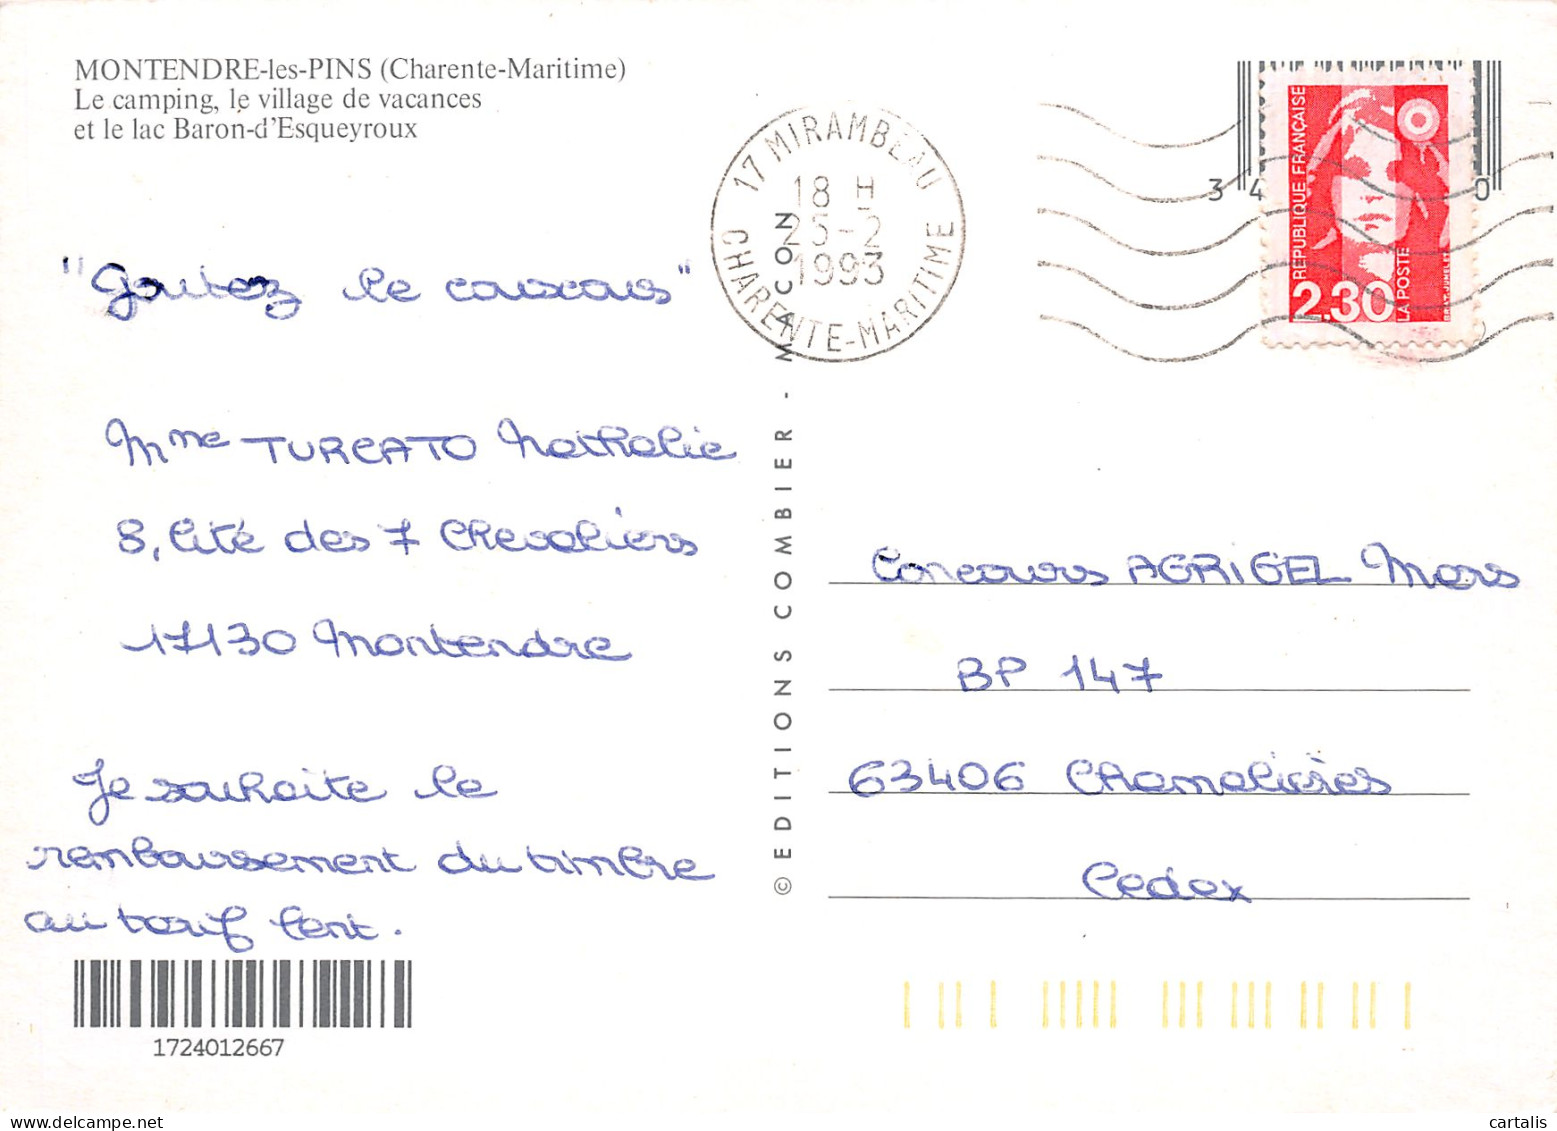 MONTENDRE-les-PINS (Charente-Maritime)
Le camping, le village de vacances
et le lac Baron-d'Esqueyroux
"Goutez le couscous"
Mme TURCATO Nathalie
8, Cité des 7 Chevaliers
17130 Montendre
Je souhaite le
remboursement du timbre
au tarif lent.
1724012667
© EDITIONS COMBIER - MACON
17 MIRAMBEAU
18 H
25-2
1993
CHARENTE-MARITIME
3 4 0
REPUBLIQUE FRANÇAISE
2.30
LA POSTE
BRIAT-JUMELET
Concours AGRIGEL Mars
BP 147
63406 Chamalières
Cedex
cartalis